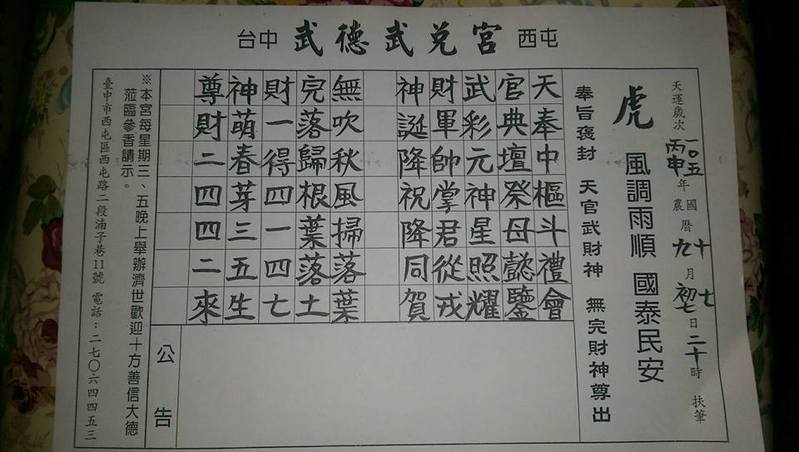 台中 武德武兌宮 西屯
天運歲次 一〇五 丙申 年 國 農 曆 十 九 月 七 初七 日 二十 時 扶筆
虎 風調雨順 國泰民安
奉旨褒封 天官武財神 無完財神尊出
天奉中樞斗禮會
官典壇祭母懿鑒
武彩元神星照耀
財軍帥掌君從戎
神誕降祝降同賀
無吹秋風掃落葉
完落歸根葉落土
財一得四一四七
神萌春芽三五生
尊財二四四二來
公告
※本宮每星期三、五晚上舉辦濟世歡迎十方善信大德
蒞臨參香請示。
臺中市西屯區西屯路二段湳子巷11號 電話：二七〇六四四五三